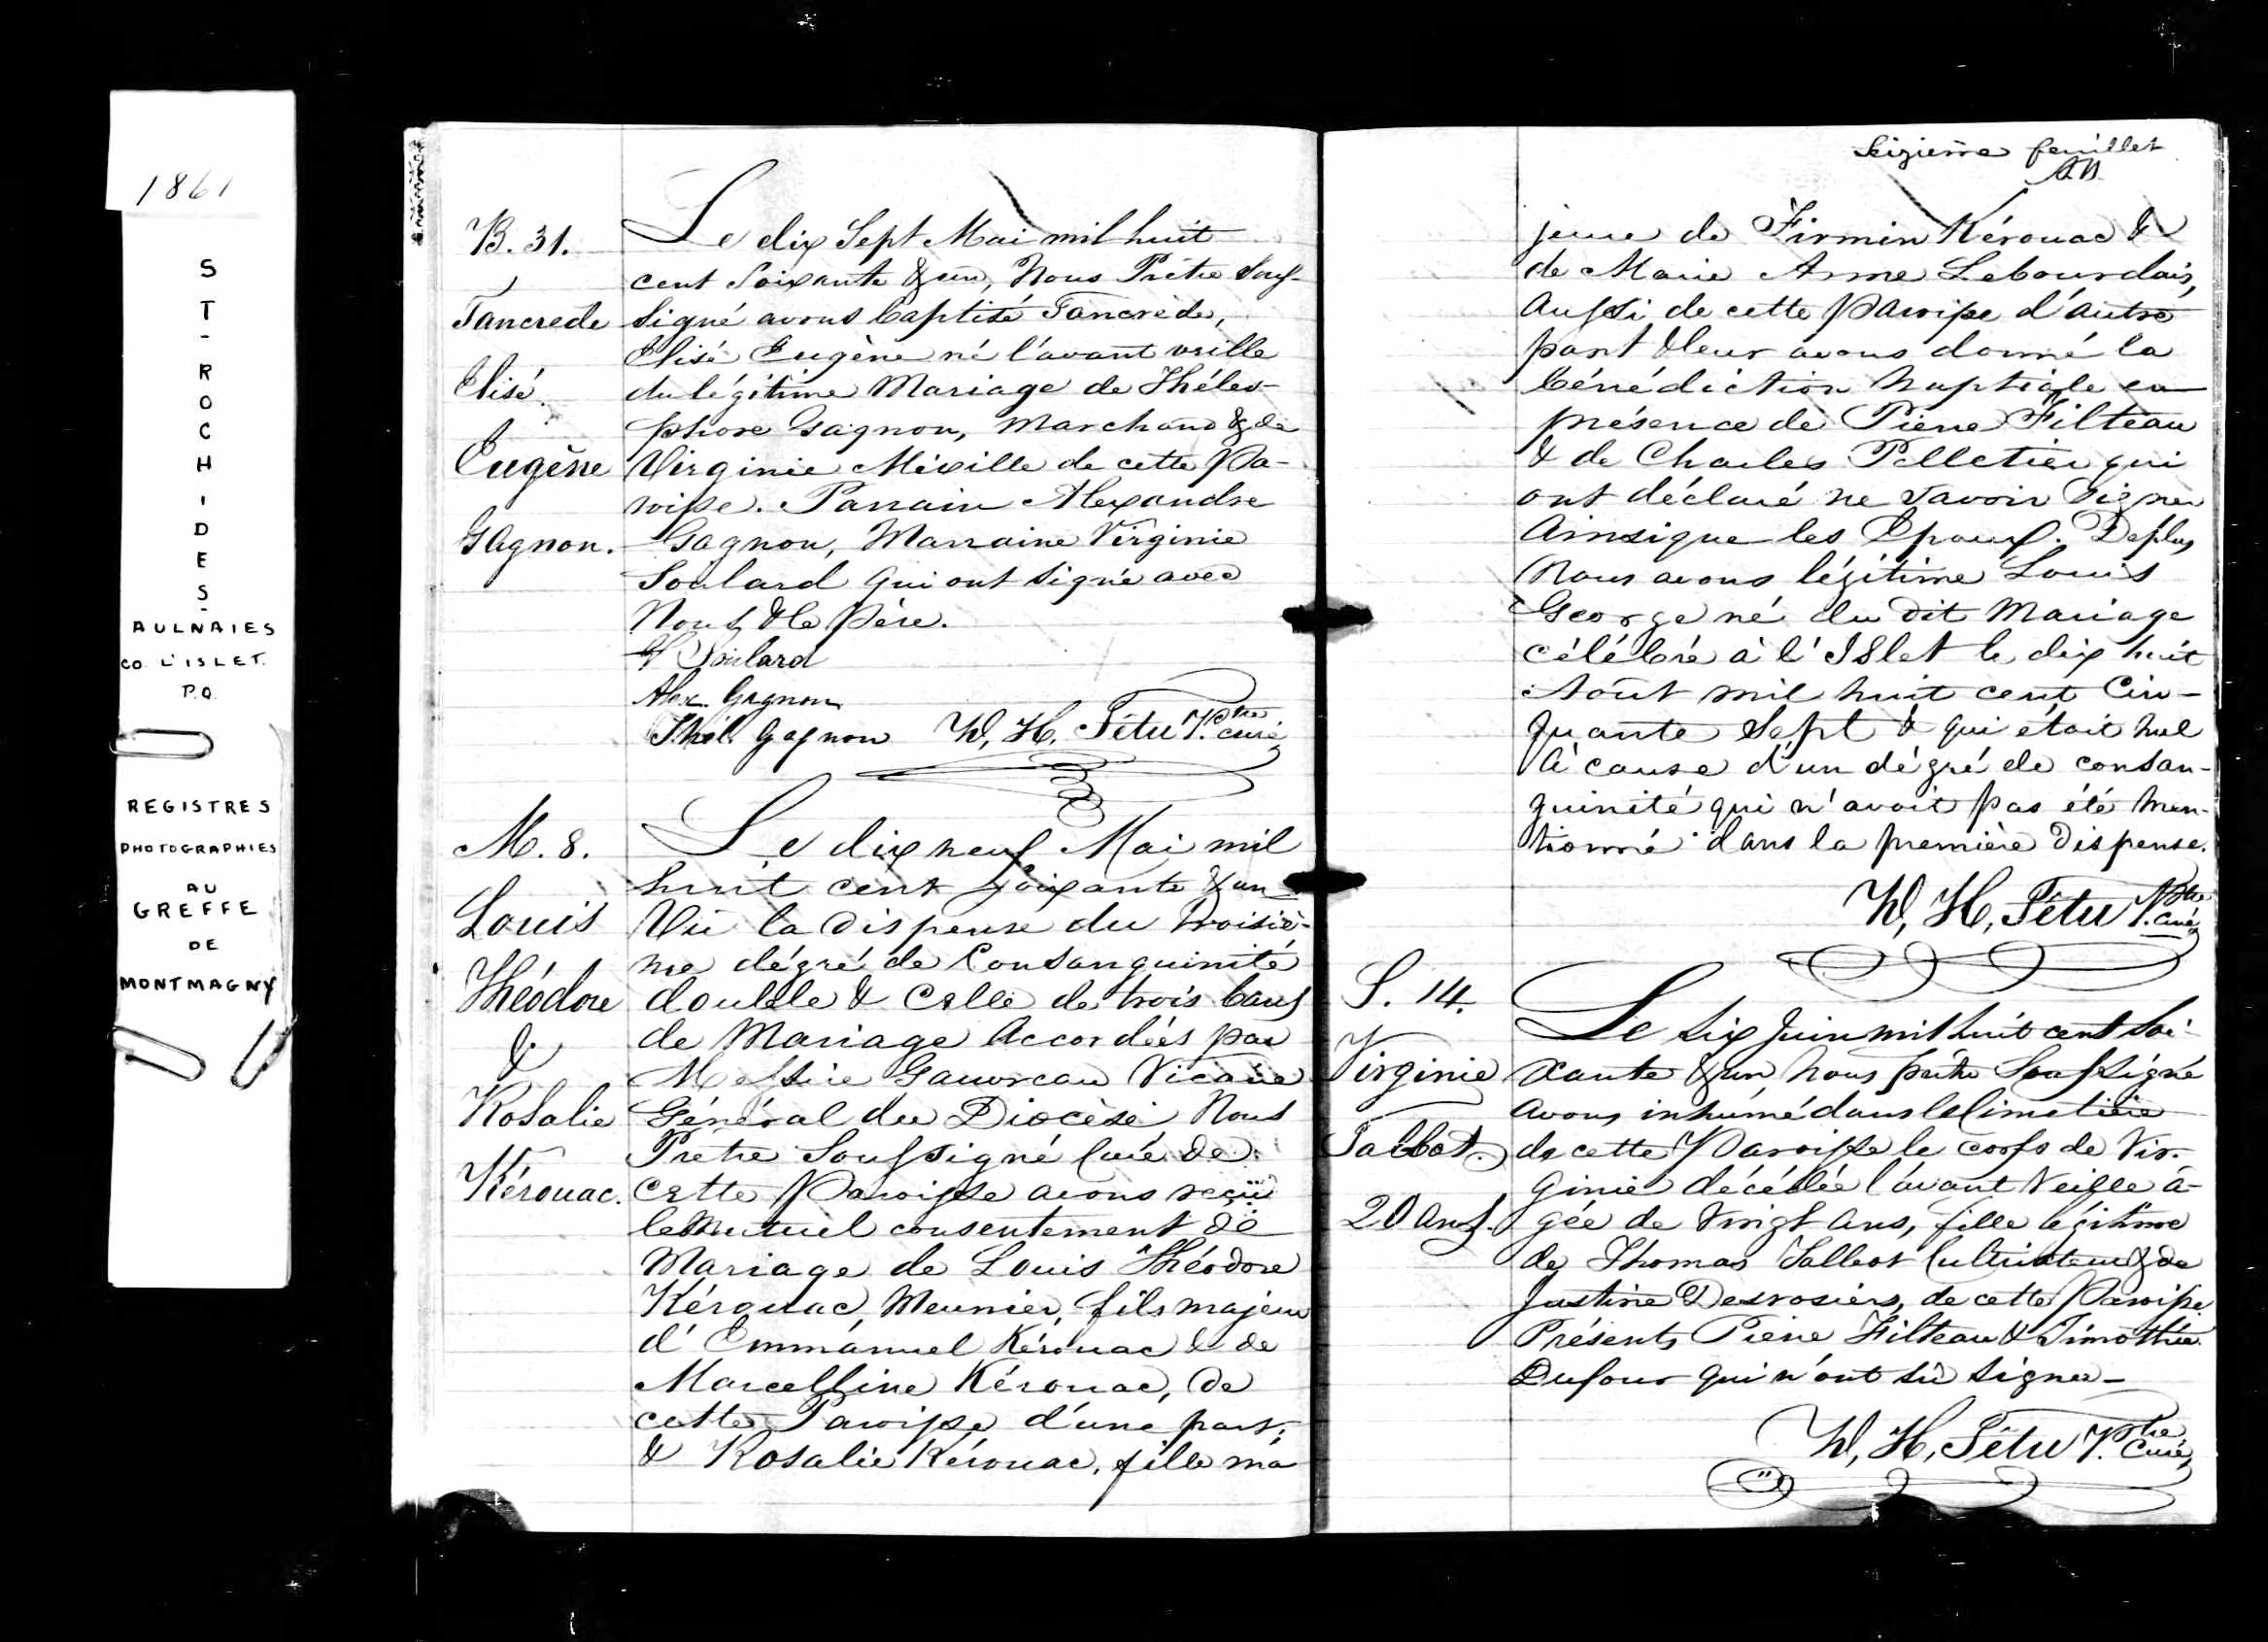 1861
ST-ROCH-DES-
AULNAIES
CO. L'ISLET.
P.Q.
REGISTRES
PHOTOGRAPHIES
AU
GREFFE
DE
MONTMAGNY
B. 31.
Tancrede
Elisé
Eugène
Gagnon.
Le dix Sept Mai mil huit
cent Soixante & un, Nous Prêtre Sous-
signé avons baptisé Tancrède,
Elisé Eugène né l'avant veille
du légitime Mariage de Théles-
phore Gagnon, Marchand & de
Virginie Miville de cette Pa-
roisse. Parrain Alexandre
Gagnon, Marraine Virginie
Soulard qui ont signé avec
Nous & le Père.
V Soulard
Alex. Gagnon
Thél. Gagnon W, H. Têtu Ptre curé
M. 8.
Louis
Théodore
&
Rosalie
Kérouac.
Le dix neuf Mai mil
huit cent soixante & un
Vu la dispense du troisiè-
me dégré de Consanguinité
double & Celle de trois bans
de Mariage Accordées par
Messire Gauvreau Vicaire
Général du Diocèse Nous
Prêtre Soussigné Curé de
cette Paroisse avons reçu
le mutuel consentement de
Mariage de Louis Théodore
Kérouac, Meunier, fils majeur
d'Emmanuel Kérouac & de
Marcelline Kérouac, de
cette Paroisse d'une part;
& Rosalie Kérouac, fille ma
Seizième feuillet
jeure de Firmin Kérouac &
de Marie Anne Lebourdais,
Aussi de cette Paroisse d'autre
part & leur avons donné la
bénédiction Nuptiale en
présence de Pierre Filteau
& de Charles Pelletier qui
ont déclaré ne savoir Signer
Ainsi que les Epoux. De plus
Nous avons légitimé Louis
George né du dit Mariage
célébré à l'Islet le dix huit
Août mil huit cent Cin-
quante Sept & qui était nul
à cause d'un dégré de consan-
guinité qui n'avait pas été men-
tionné dans la première Dispense.
W, H, Têtu Ptre. Curé
S. 14.
Virginie
Talbot.
20 Ans.
Le Six Juin mil huit cent soi-
xante & un nous prêtre Soussigné
avons inhumé dans le Cimetière
de cette Paroisse le corps de Vir-
ginie décédée l'avant Veille â-
gée de Vingt Ans, fille légitime
de Thomas Talbot Cultivateur & de
Justine Desrosiers, de cette Paroisse.
Présents Pierre Filteau & Timothée
Dufour qui n'ont sû signer-
W, H, Têtu Ptre. Curé